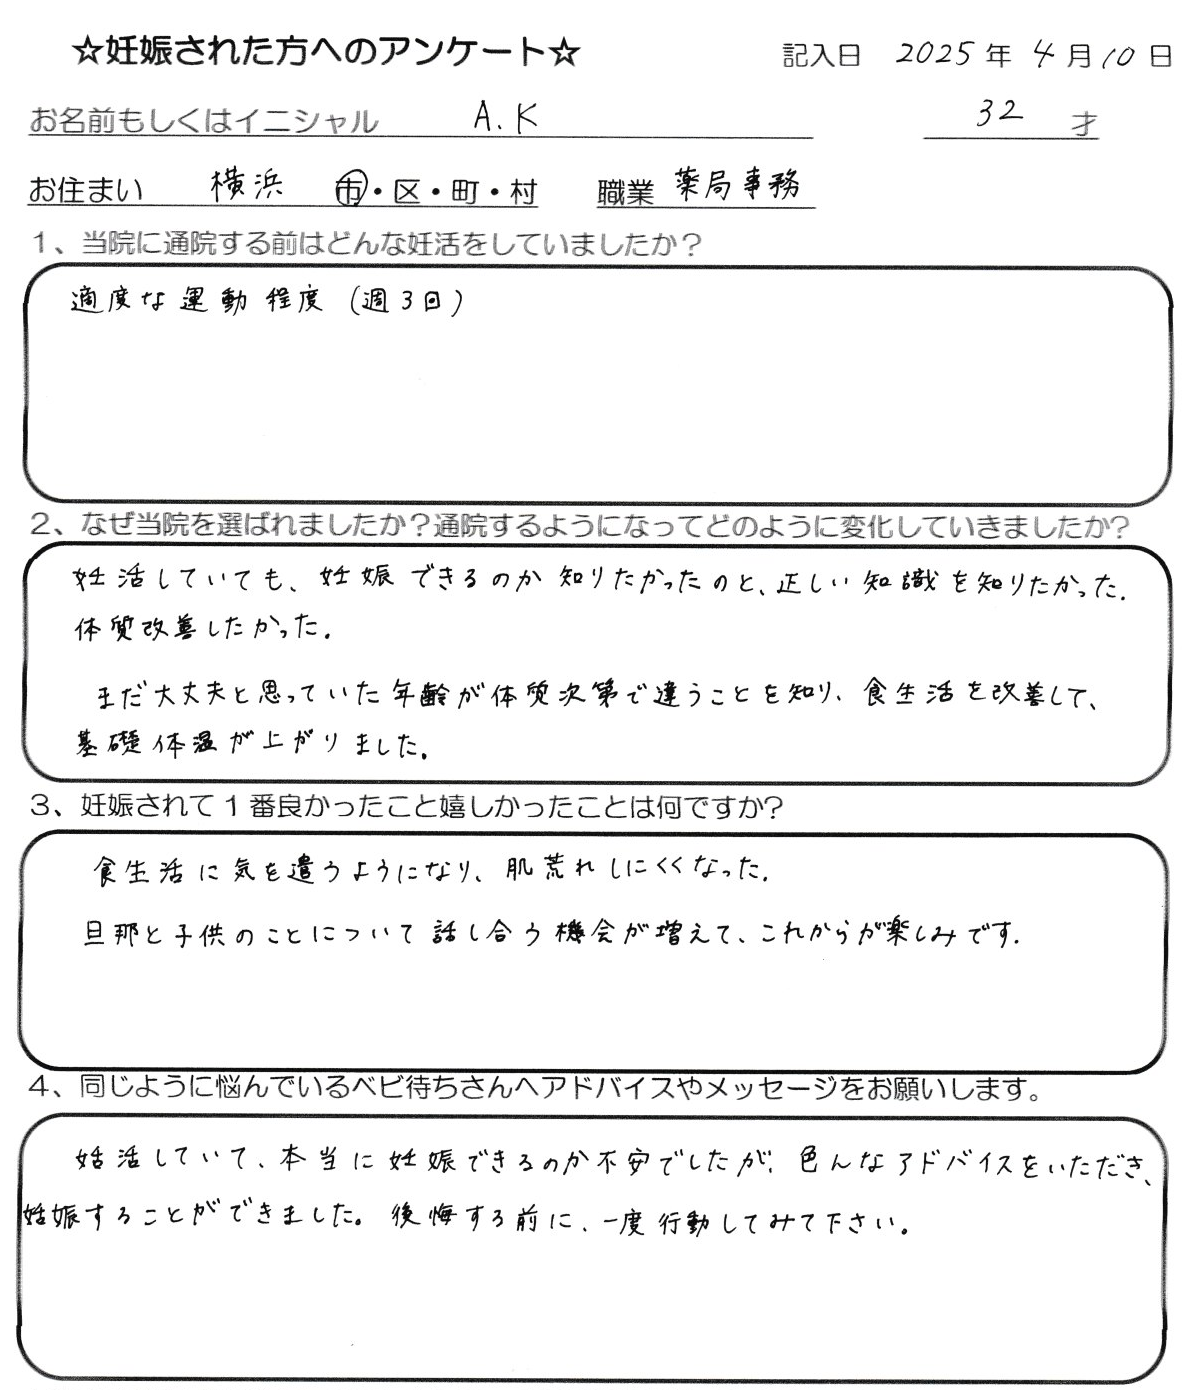 ☆妊娠された方へのアンケート☆ 記入日 2025年4月10日
お名前もしくはイニシャル A.K 32才
お住まい 横浜 市・区・町・村 職業 薬局事務
1、当院に通院する前はどんな妊活をしていましたか？
適度な運動程度（週3回）
2、なぜ当院を選ばれましたか？通院するようになってどのように変化していきましたか？
妊活していても、妊娠できるのか知りたかったのと、正しい知識を知りたかった.
体質改善したかった.
まだ大丈夫と思っていた年齢が体質次第で違うことを知り、食生活を改善して、
基礎体温が上がりました.
3、妊娠されて1番良かったこと嬉しかったことは何ですか？
食生活に気を遣うようになり、肌荒れしにくくなった.
旦那と子供のことについて話し合う機会が増えて、これからが楽しみです.
4、同じように悩んでいるベビ待ちさんへアドバイスやメッセージをお願いします。
妊活していて、本当に妊娠できるのか不安でしたが、色んなアドバイスをいただき、
妊娠することができました。後悔する前に、一度行動してみて下さい。